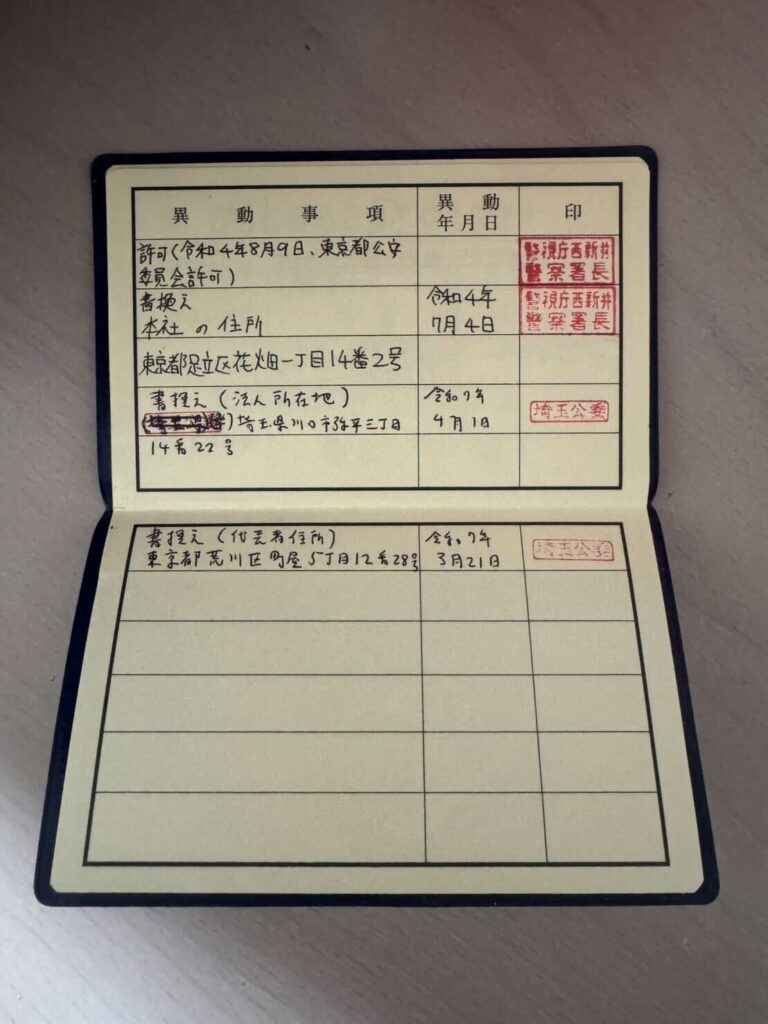 異動事項
異動
年月日
印
許可(令和4年8月9日、東京都公安
委員会許可)
警視庁西新井
警察署長
書換え
本社の住所
令和4年
7月4日
警視庁西新井
警察署長
東京都足立区花畑一丁目14番2号
書換え(法人所在地)
埼玉県川口市弥平三丁目
14番22号
令和7年
4月1日
埼玉公委
書換え(代表者住所)
東京都荒川区町屋5丁目12番28号
令和7年
3月21日
埼玉公委